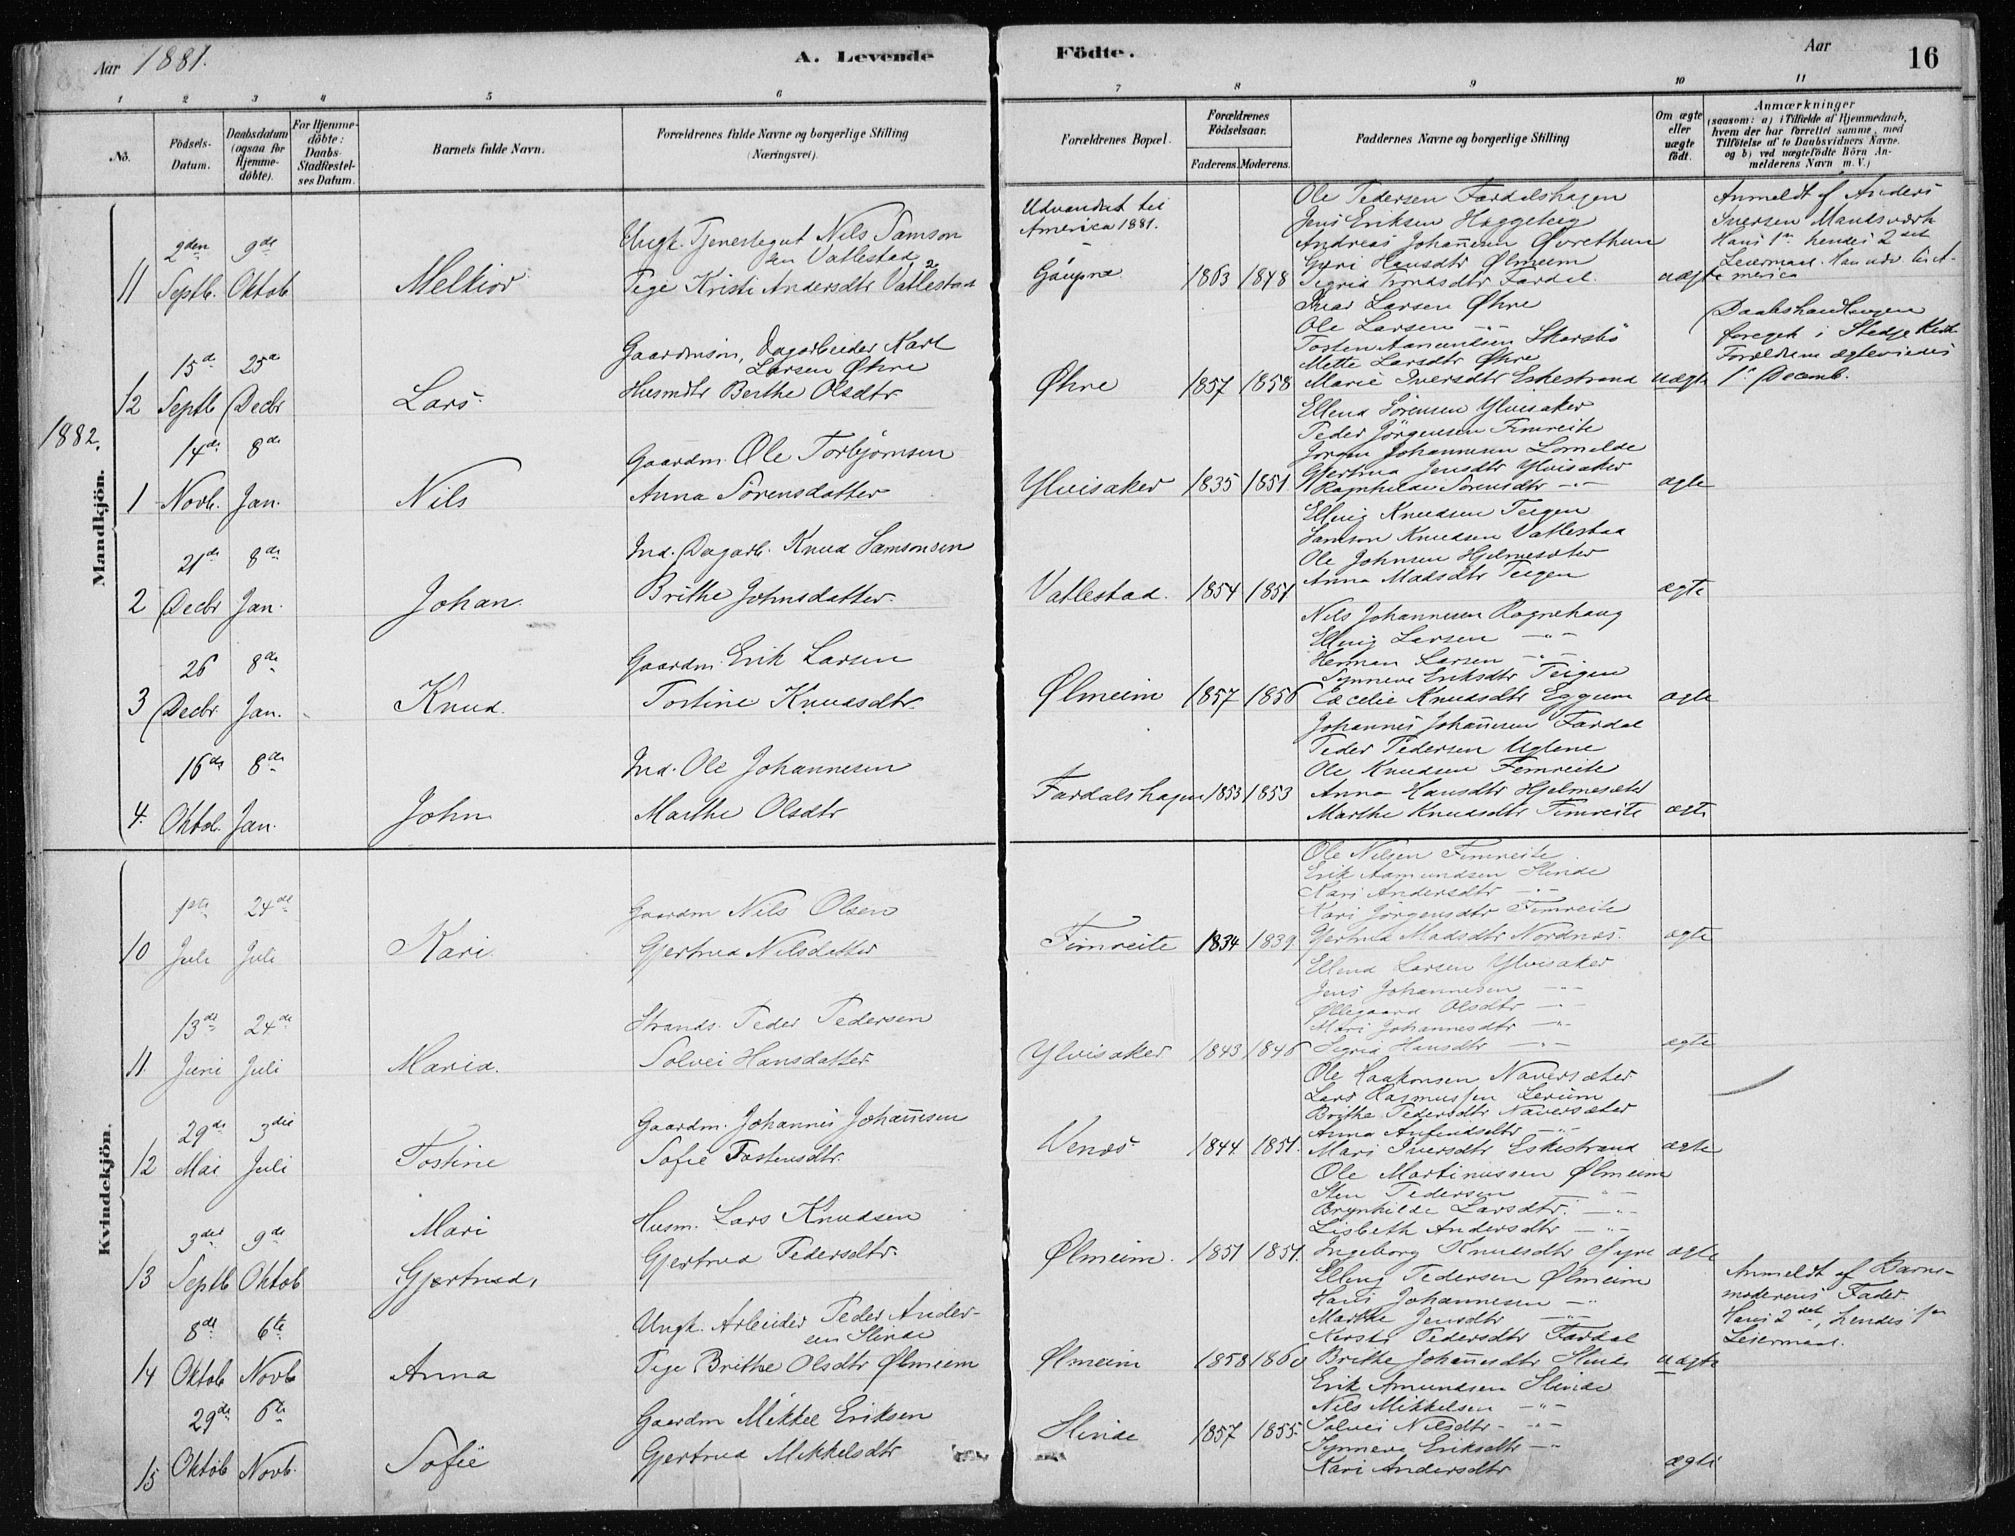 Aar 1881. A. Levende Födte. Aar 16
1 2 3 4 5 6 7 8 9 10 11
No.
Födsels-Datum.
Daabsdatum (ogsaa for Hjemmedöbte).
For Hjemmedöbte: Daabs-Stadfæstelses Datum.
Barnets fulde Navn.
Forældrenes fulde Navne og borgerlige Stilling (Næringsvei).
Forældrenes Bopæl.
Forældrenes Födselsaar.
Faderens. Moderens.
Faddernes Navne og borgerlige Stilling
Om ægte eller uægte födt.
Anmærkninger
(saasom: a) i Tilfælde af Hjemmedaab, hvem der har forrettet samme, med Tilföielse af to Daabsvidners Navne. og b) ved uægtefödte Börn Anmelderens Navn m. V.)
Mandkjön.
11
2den Septb.
9de Oktob
Melkior
Ungk. Tjenestegut Nils Samson
sen Vatlestad
Pige Kristi Andersdtr Vatlestad
Udvandret til
America 1881.
Gaupne
1863 1848
Ole Pedersen Fardalshagen
Jens Eriksen Haggeberg
Andreas Johannesen Øvrethun
Guri Hansdtr Ølmeim
Sigrid Fardal.
uægte
Anmeldt af Anders
Iversen
Hans 1ste hendes 2det
Leiermaal. Han udv. til A-
merica
12
15de Septb
25de Decbr
Lars.
Gaardmsøn, Dagarbeider Karl
Larsen Øhre
Husmdtr Berthe Olsdtr
Øhre
1857 1858
Ivar Larsen Øhre
Ole Larsen -"-
Tosten Aamundsen Skarsbö
Mette Larsdtr Øhre
Marie Iversdtr Eskestrand
uægte
Daabshandlingen
foregik i Stedje Kirk
Forældrene ægteviedes
1ste Decemb.
1882.
1
14de Novb.
8de Jan.
Nils
Gaardm. Ole Torbjørnsen
Anna Sørensdatter
Ylvisaker
1835 1851
Ellend Sørensen Ylvisaker
Peder Jörgensen Fimreite
Jörgen Johannesen Lomelde
Gjertrud Jensdtr Ylvisaker
Ragnhilde Sørensdtr -"-
ægte
2
21de Decbr
8de Jan.
Johan.
Ind. Dagarb. Knud Samsonsen
Brithe Johnsdatter.
Vatlestad.
1854 1851
Elling Knudsen Teigen
Samson Knudsen Vatlestad
Ole Johnsen Hjelmesæter
Anna Madsdtr Teigen
ægte
3
26 Decbr
8de Jan.
Knud.
Gaardm. Erik Larsen
Tostine Knudsdtr.
Ølmeim
1857 1856
Nils Johannesen Ragnehaug
Elling Larsen -"-
Herman Larsen -"-
Synneve Eriksdtr Teigen
Cæcelie Knudsdtr Eggum
ægte
4.
16de Oktob.
8de Jan.
John
Ind. Ole Johannesen
Marthe Olsdtr
Fardalshagen
1853 1853
Johannes Johannesen Fardal
Peder Pedersen Uglene
Ole Knudsen Fimreite
Anna Hansdtr Hjelmesæter
Marthe Knudsdtr Fimreite
ægte
Kvindekjön.
10
1ste Juli
24de Juli
Kari.
Gaardm Nils Olsen
Gjertrud Nilsdatter
Fimreite
1834 1839.
Ole Nilsen Fimreite
Erik Aamundsen Slinde
Kari Andersdtr -"-
Kari Jörgensdtr Fimreite
Gjertrud Madsdtr Nordnes.
ægte
11
13de Juni
24de Juli
Maria.
Strands. Peder Pedersen
Solvei Hansdatter
Ylvisaker
1843 1846
Ellend Larsen Ylvisaker
Jens Johannesen -"-
Øllegaard Olsdtr -"-
Mari Johannesdtr -"-
Sigrid Hansdtr -"-
ægte
12
29de Mai
3die Juli
Tostine
Gaardm. Johannes Johannesen
Sofie Tostensdtr.
Venæs
1844 1851.
Ole Haakonsen Naversæter
Lars Rasmussen Lerum
Brithe Pedersdtr Naversæter
Anna -"-
Mari Iversdtr Eskestrand
ægte
13
3die Septb
9de Oktob
Mari
Gjertrud,
Husm. Lars Knudsen
Gjertrud Pedersdtr.
Ølmeim.
1851 1851.
Ole Martinussen Ølmeim
Sten Pedersen -"-
Brynhilde Larsdtr. -"-
Lisbeth Andersdtr -"-
Ingeborg Knudsdtr
ægte
14
8de Oktob
6te Novb
Anna
Ungk. Arbeider Peder Ander-
sen Slinde
Pige Brithe Olsdtr Ølmeim
Ølmeim
1858 1860
Elling Pedersen Ølmeim
Hans Johannesen -"-
Marthe Jensdtr -"-
Kersti Pedersdtr Fardal
Brithe Johannesdtr Slinde
uægte
Anmeldt af Barne-
moderens Fader.
Hans 2det, hendes 1ste
Leiermaal.
15
29de Oktob
6te Novb.
Sofie
Gaardm Mikkel Eriksen
Gjertrud Mikkelsdtr
Slinde
1857 1855.
Erik Amundsen Slinde
Nils Mikkelsen -"-
Solvei Nilsdtr -"-
Synneve Eriksdtr -"-
Kari Andersdtr
ægte